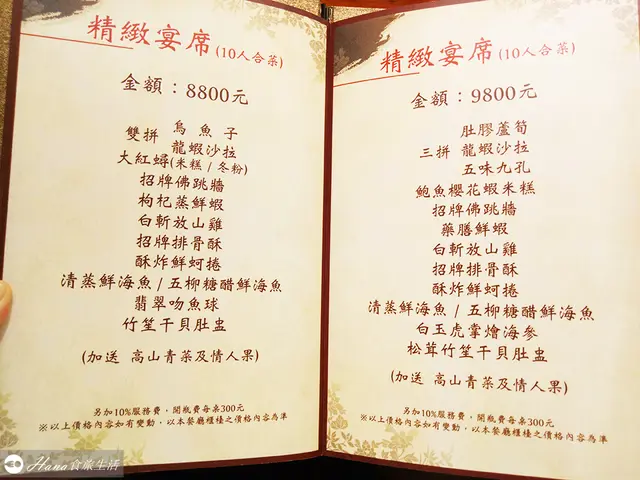 精緻宴席(10人合菜)
金額：8800元
烏魚子
雙拼 龍蝦沙拉
大紅蟳(米糕 / 冬粉)
招牌佛跳牆
枸杞蒸鮮蝦
白斬放山雞
招牌排骨酥
酥炸鮮蚵捲
清蒸鮮海魚 / 五柳糖醋鮮海魚
翡翠吻魚球
竹笙干貝肚盅
(加送 高山青菜及情人果)
另加10%服務費，開瓶費每桌300元
※以上價格內容如有變動，以本餐廳櫃檯之價格內容為準
精緻宴席(10人合菜)
金額：9800元
肚膠蘆筍
三拼 龍蝦沙拉
五味九孔
鮑魚櫻花蝦米糕
招牌佛跳牆
藥膳鮮蝦
白斬放山雞
招牌排骨酥
酥炸鮮蚵捲
清蒸鮮海魚 / 五柳糖醋鮮海魚
白玉虎掌燴海參
松茸竹笙干貝肚盅
(加送 高山青菜及情人果)
另加10%服務費，開瓶費每桌300元
※以上價格內容如有變動，以本餐廳櫃檯之價格內容為準
Hana食旅生活